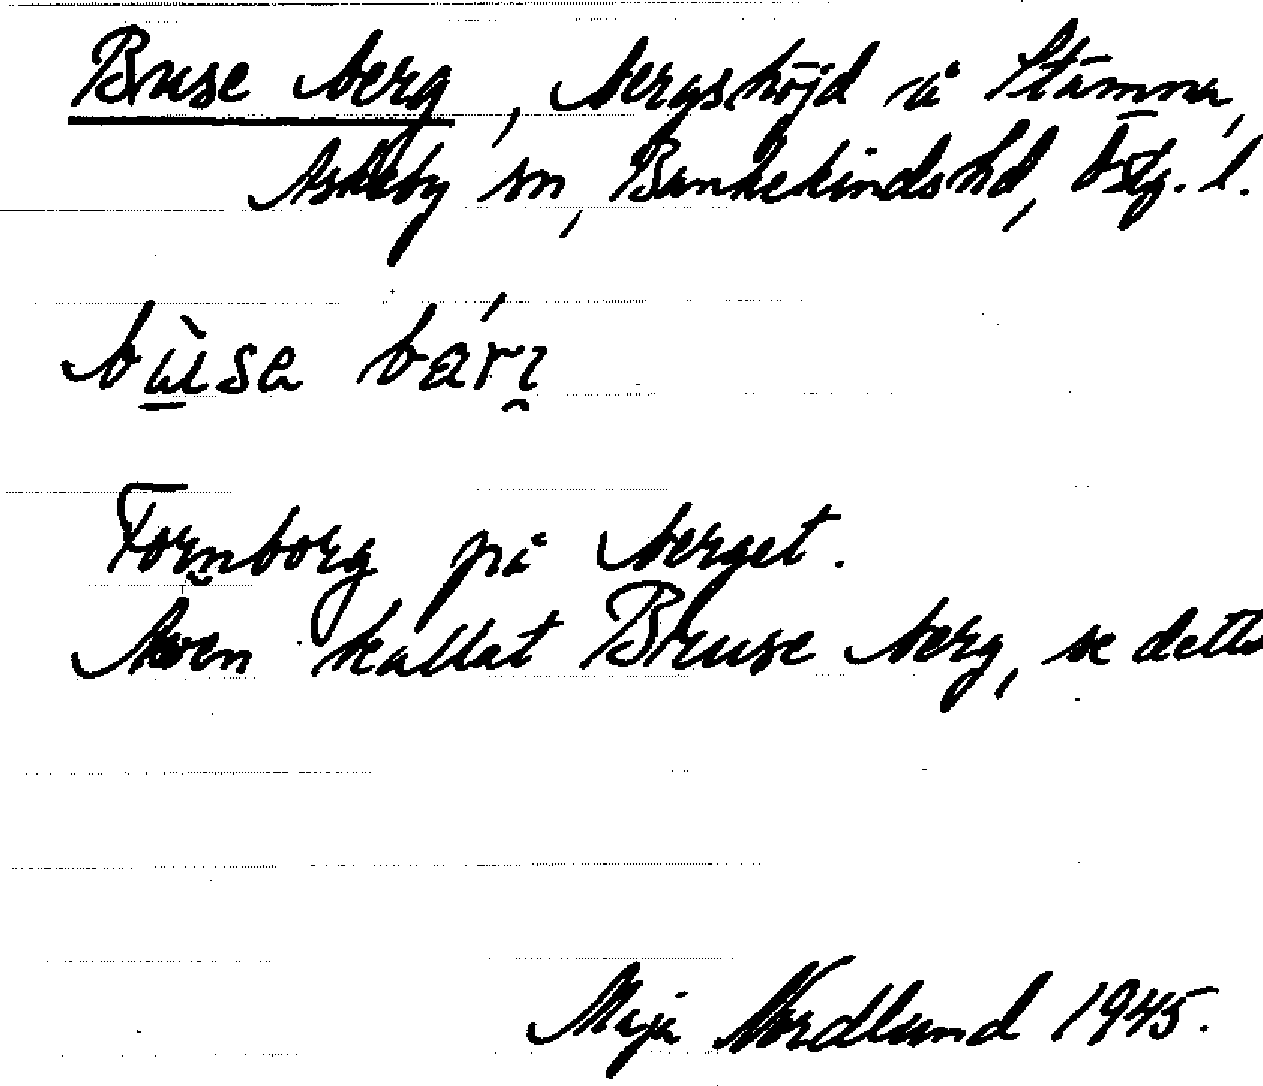 Buse berg, bergshöjd å Stämma,
Askeby sn, Bankekinds hd, Östg. l.
bù̲sa bári̯
Fornborg på berget.
Även kallat Bruse berg, se detta
Maja Nordlund 1945.